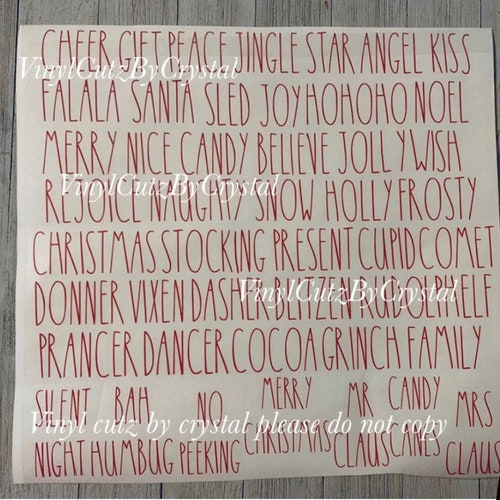 CHEER GIFT PEACE JINGLE STAR ANGEL KISS
VinylCutzByCrystal
FALALA SANTA SLED JOY HOHOHO NOEL
MERRY NICE CANDY BELIEVE JOLLY WISH
VinylCutzByCrystal
REJOICE NAUGHTY SNOW HOLLY FROSTY
CHRISTMAS STOCKING PRESENT CUPID COMET
DONNER VIXEN DASHER BLITZEN RUDOLPH ELF
VinylCutzByCrystal
PRANCER DANCER COCOA GRINCH FAMILY
SILENT BAH NO MERRY MR CANDY MRS
Vinyl cutz by crystal please do not copy
NIGHT HUMBUG PEEKING CHRISTMAS CLAUS CANES CLAUS